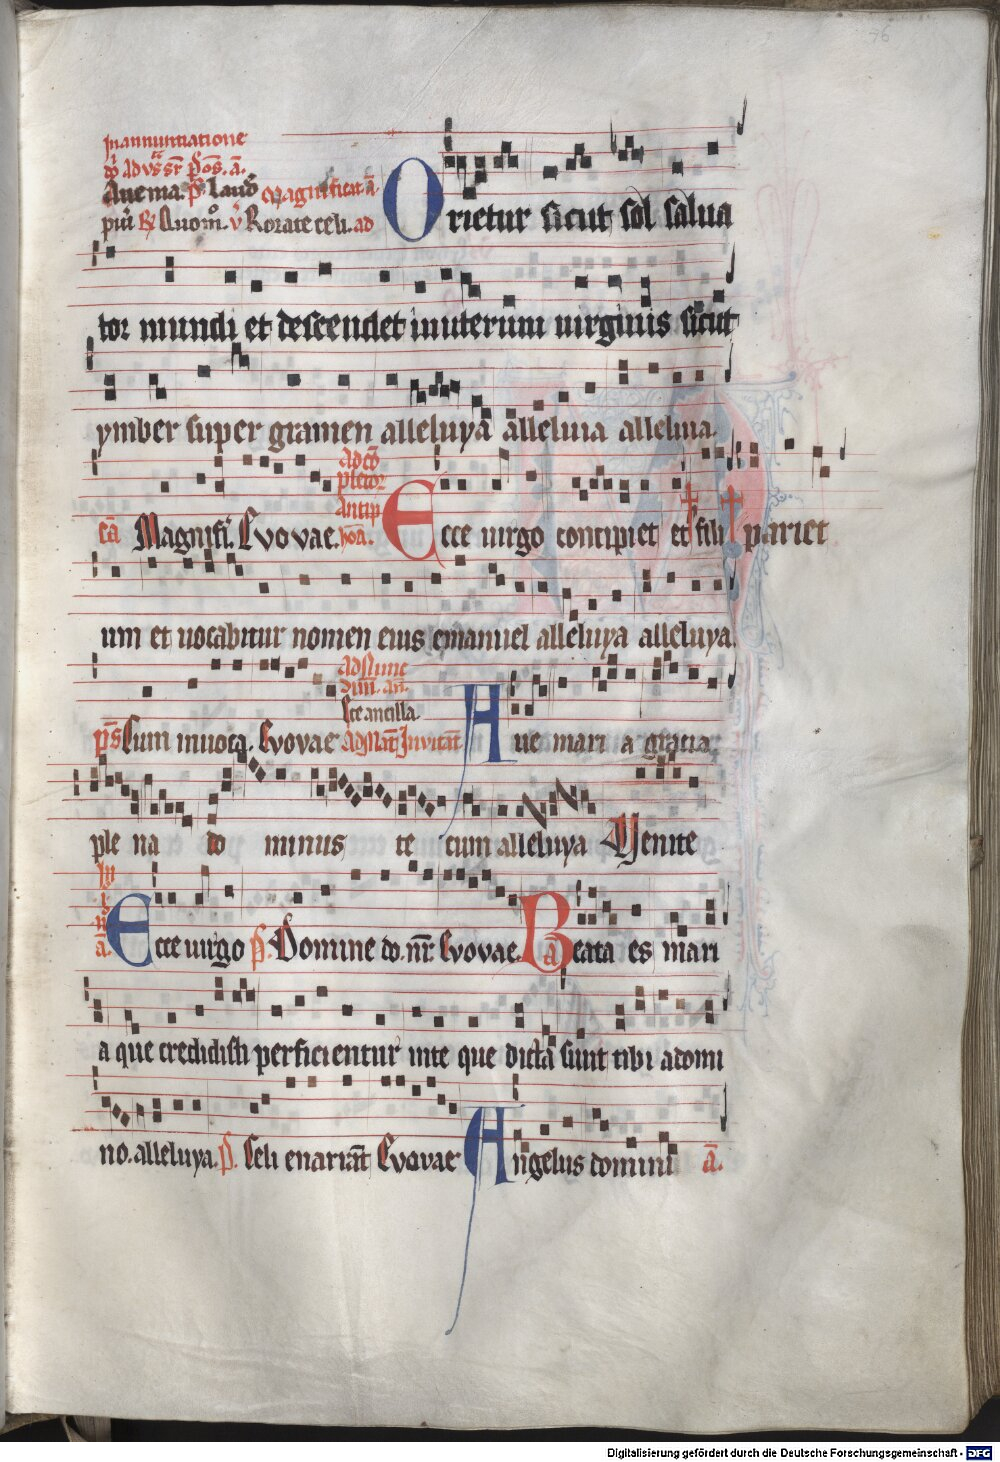 76
In annuntiatione
Ave ma. ps. Laud
Magnificat a.
R Rorate celi. ad
Orietur sicut sol salua
tor mundi et descendet in uterum uirginis sicut
ymber super gramen alleluya alleluia alleluia.
ca Magnifi. Evovae. Ad co
pletor
Antip
hoa. Ecce uirgo concipiet et fili pariet
um et uocabitur nomen eius emanuel alleluya alleluya.
ps Cum inuoca. Evovae
Ecce ancilla.
Ad Mat Inuitat Aue mari a gracia
ple na do minus te cum alleluya Venite
a. Ecce uirgo ps. Domine do. nr. Evovae. a Beata es mari
a que credidisti perficientur in te que dicta sunt tibi a domi
no. alleluya. ps. Celi enariat Evovae Angelus domini a.
Digitalisierung gefördert durch die Deutsche Forschungsgemeinschaft - DFG